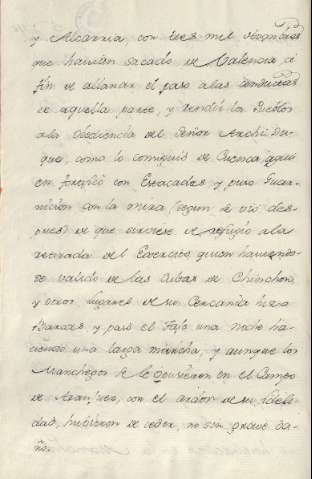 y Alcarria, con tres mil
que havian sacado de Valencia, a
fin de allanar el paso a las
de aquella parte, y rendir los Pueblos
a la obediencia del Señor Archidu-
que, como lo consiguió de Cuenca que
en fortificó con Estacadas y puso Guar-
nicion con la mira (segun se vió des-
pues) de que sirviese de refugio a la
retirada del Exercito, quien haviendo-
se valido de las Cubas de Chinchon
y otros lugares de su Cercania hizo
Barcas, y pasó el Tajo una noche ha-
ciendo una larga marcha, y aunque los
Manchegos se le opusieron en el Campo
de Aranjuez, con el ardor de su fideli-
dad, hubieron de ceder, no sin grave da-
ño.